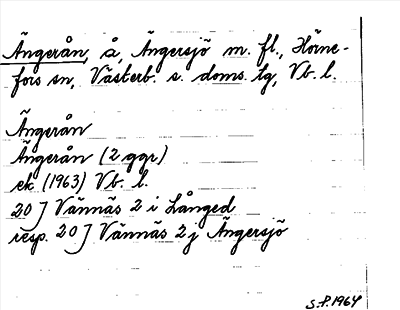 Ängerån, å, Ängersjö m. fl., Hörne-
fors sn, Västerb. s. doms. tg, Vb. l.
Ängerån
Ängerån (2 ggr)
ek (1963) Vb. l.
20 J Vännäs 2 i Långed
resp. 20 J Vännäs 2 j Ängersjö
S.P. 1964